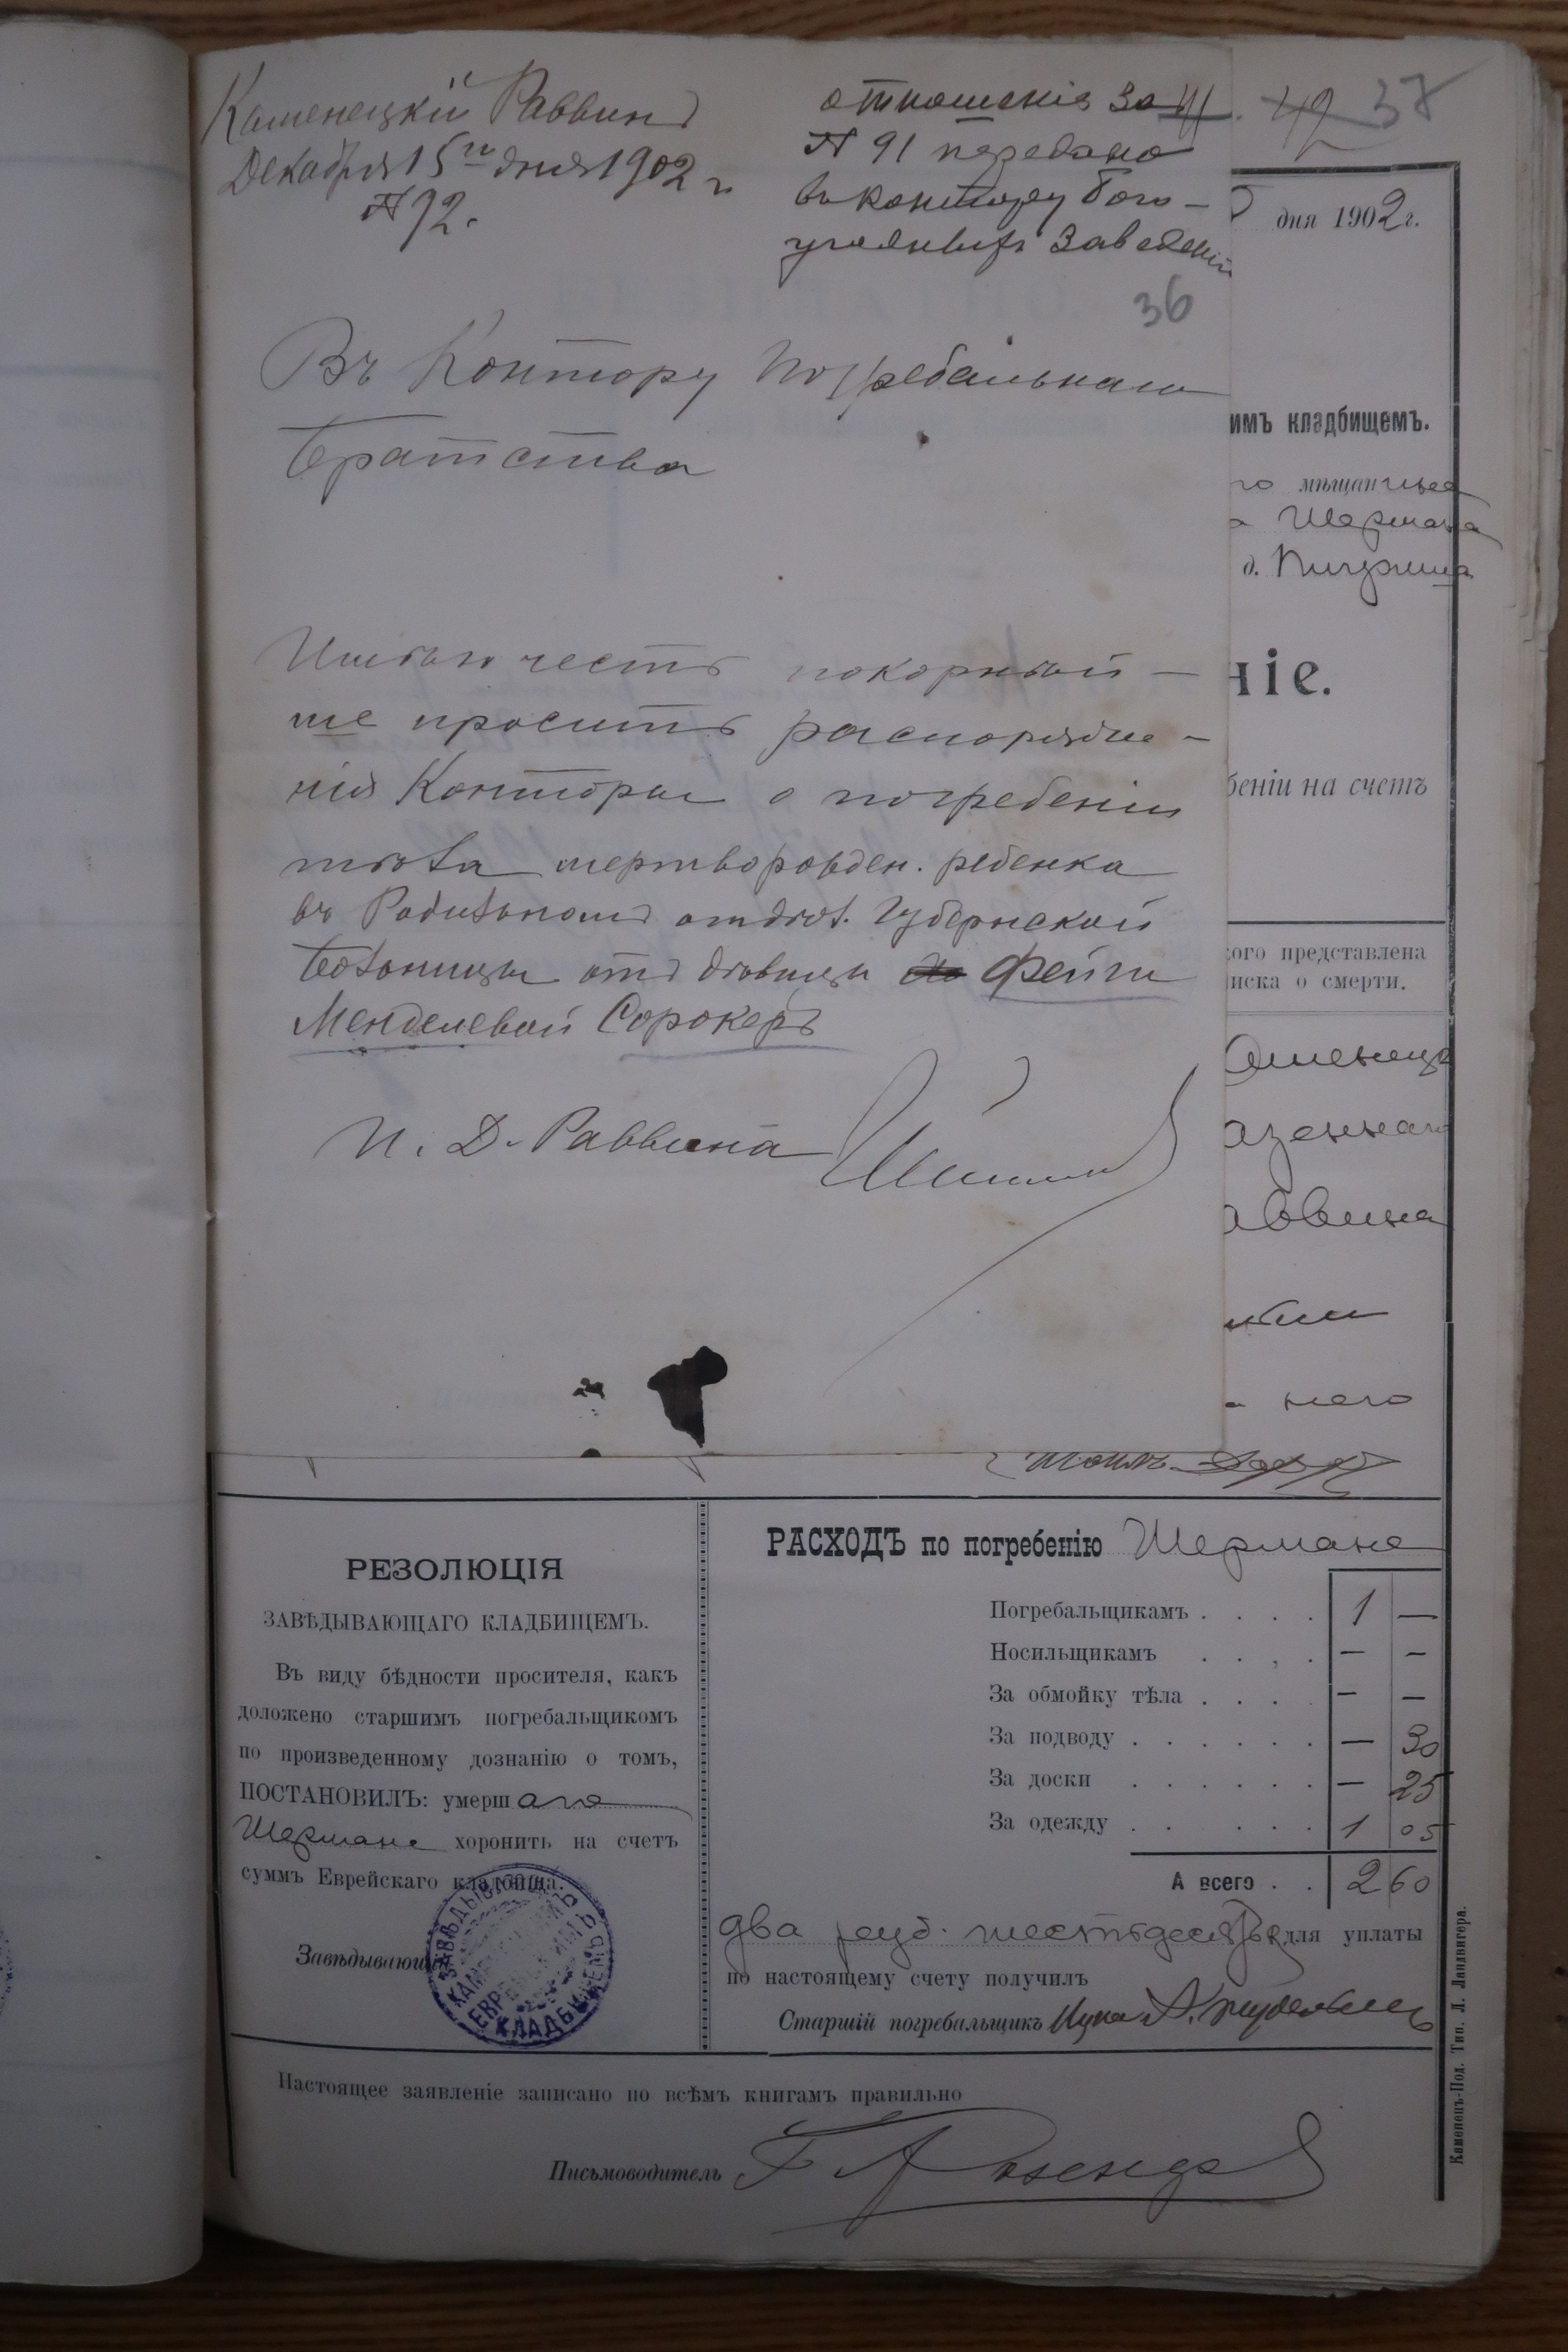 Каменецкій Раввинъ
Декабря 15го дня 1902 г.
№ 92.
отношеніе за
№ 91 передано
въ контору Бого-
угодныхъ Заведеній
42 37
36
Въ Контору Погребальнаго
Братства
Имѣю честь покорнѣй-
ше просить распоряже-
нія Конторы о погребеніи
тѣла мертворожден. ребенка
въ Родильномъ отдѣл. Губернской
Больницы отъ дѣвицы Фейги
Менделевой Сорокеръ
И. Д. Раввина
дня 1902 г.
имъ кладбищемъ.
го мѣщанина
а Шермана
д. Пигрима
ніе.
беніи на счетъ
кого представлена
иска о смерти.
аменецъ
азеннаго
аввина
него
РЕЗОЛЮЦІЯ
ЗАВѢДЫВАЮЩАГО КЛАДБИЩЕМЪ.
Въ виду бѣдности просителя, какъ
доложено старшимъ погребальщикомъ
по произведенному дознанію о томъ,
ПОСТАНОВИЛЪ: умершаго
Шермана хоронить на счетъ
суммъ Еврейскаго кладбища.
Завѣдывающ
ЗАВѢДЫВАЮЩІЙ КАМЕНЕЦКИМЪ ЕВРЕЙСКИМЪ КЛАДБИЩЕМЪ
РАСХОДЪ по погребенію Шермана
Погребальщикамъ . . . . 1 —
Носильщикамъ . . , . — —
За обмойку тѣла . . . . — —
За подводу . . . . . . — 30
За доски . . . . . . — 25
За одежду . . . . . . 1 05
А всего . . 2 60
два руб. шестьдесятъ к для уплаты
по настоящему счету получилъ
Старшій погребальщикъ
Настоящее заявленіе записано по всѣмъ книгамъ правильно
Письмоводитель
Каменецъ-Под. Тип. Л. Ландвигера.